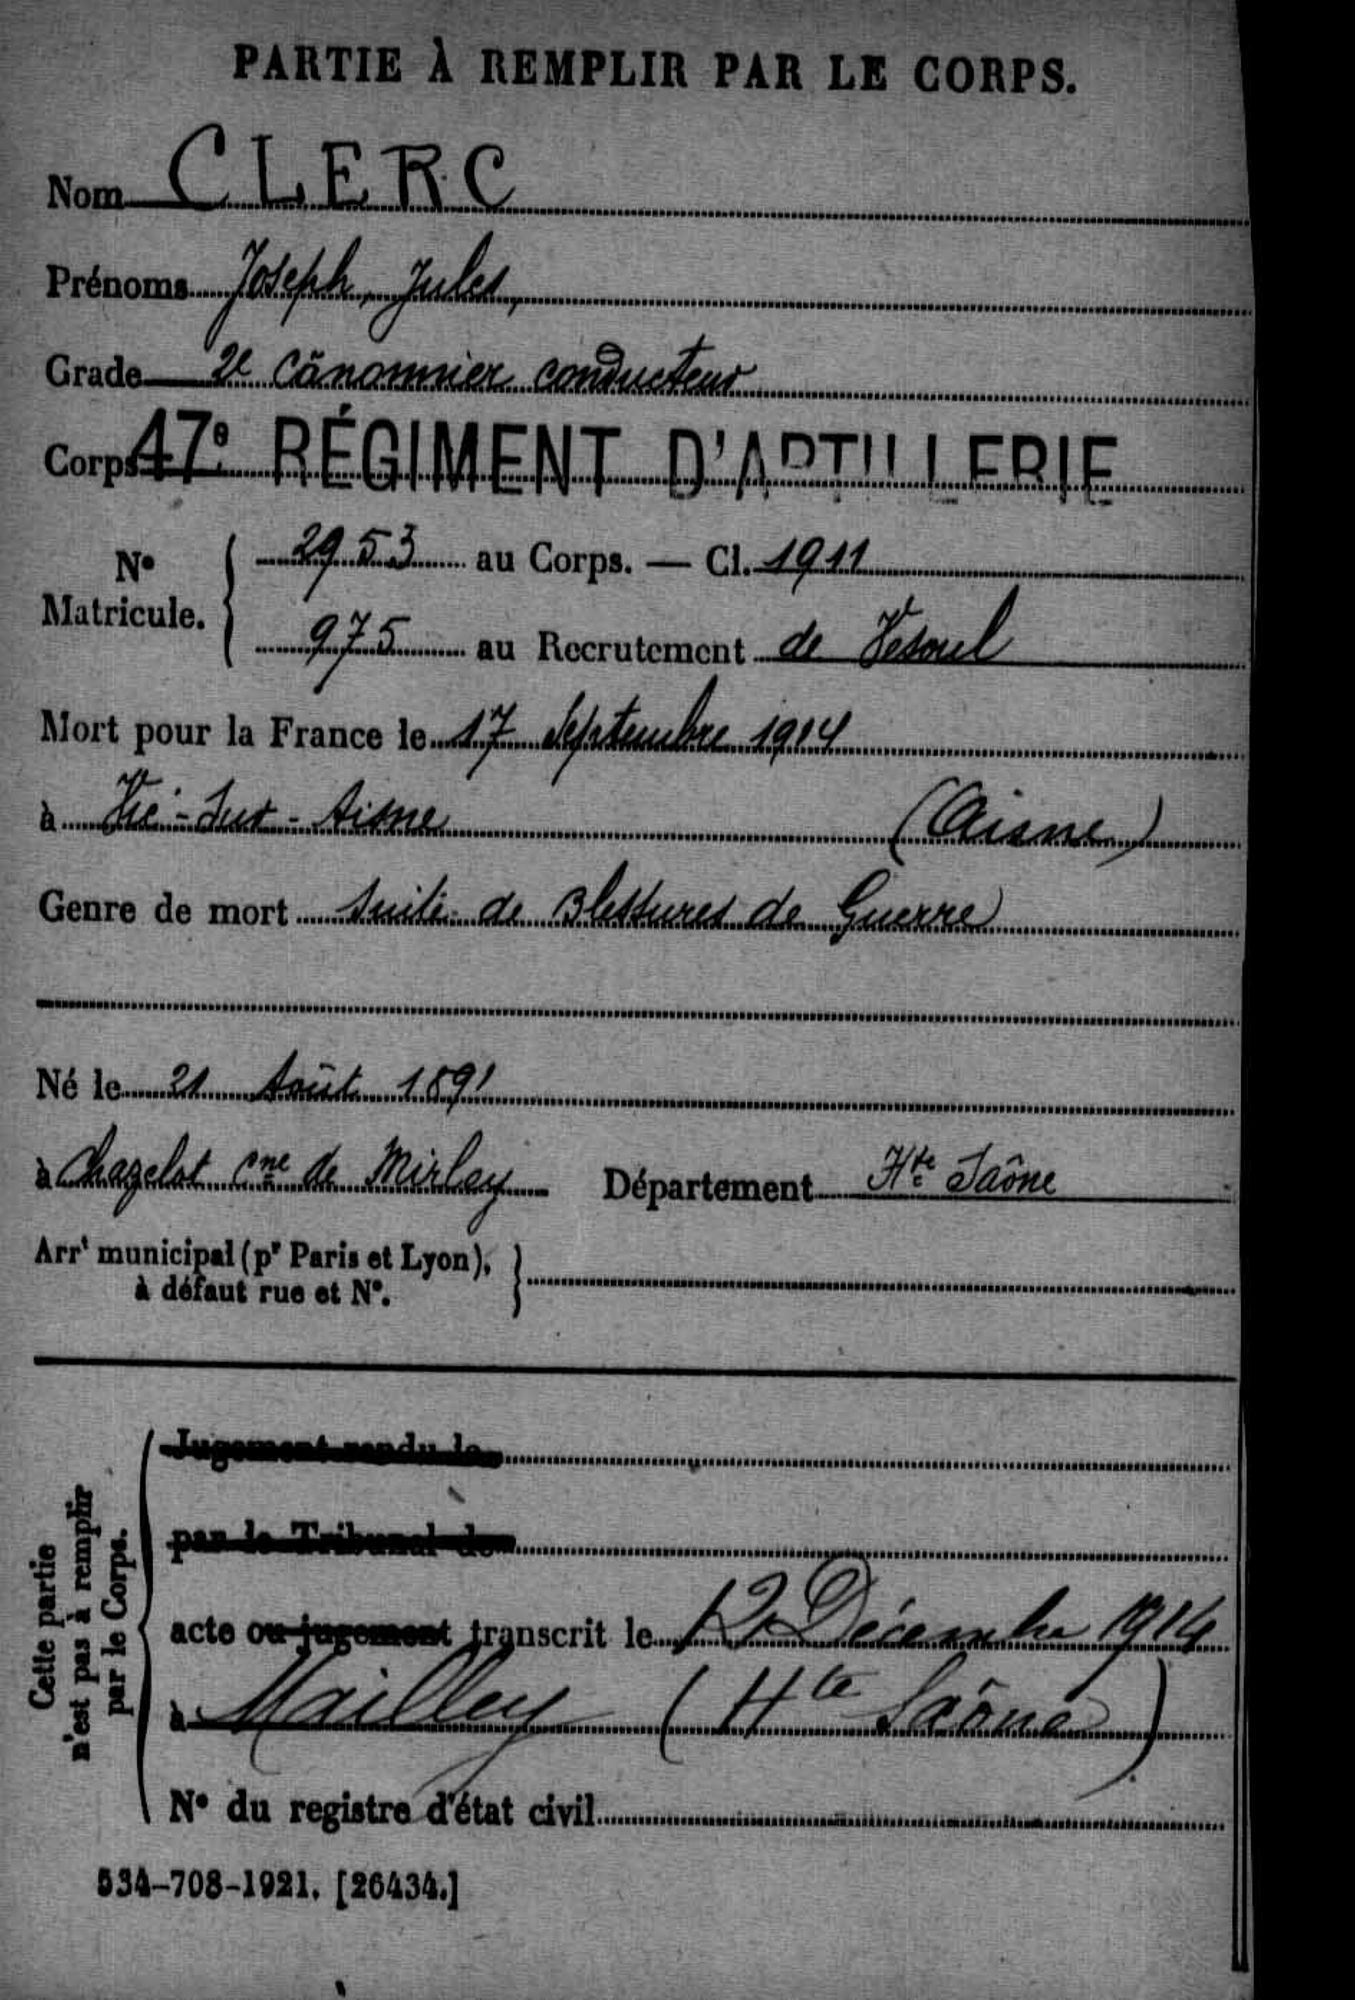 PARTIE À REMPLIR PAR LE CORPS.
Nom CLERC
Prénoms Joseph, Jules,
Grade 2e Cânonnier conducteur
Corps 47e RÉGIMENT D'ARTILLERIE
No Matricule. { 2953 au Corps. — Cl. 1911
975 au Recrutement de Vesoul
Mort pour la France le 17 Septembre 1914
à Vic-Sur-Aisne (Aisne)
Genre de mort Suite de Blessures de Guerre
Né le 21 Août 1891
à Chazelot Cne de Mirley Département Hte Saône
Arrt municipal (pr Paris et Lyon), }
à défaut rue et No.
Cette partie
n'est pas à remplir
par le Corps.
Jugement rendu le
par le Tribunal de
acte ou jugement transcrit le 12 Décembre 1914
à Mailley (Hte Saône)
No du registre d'état civil
534-708-1921. [26434.]